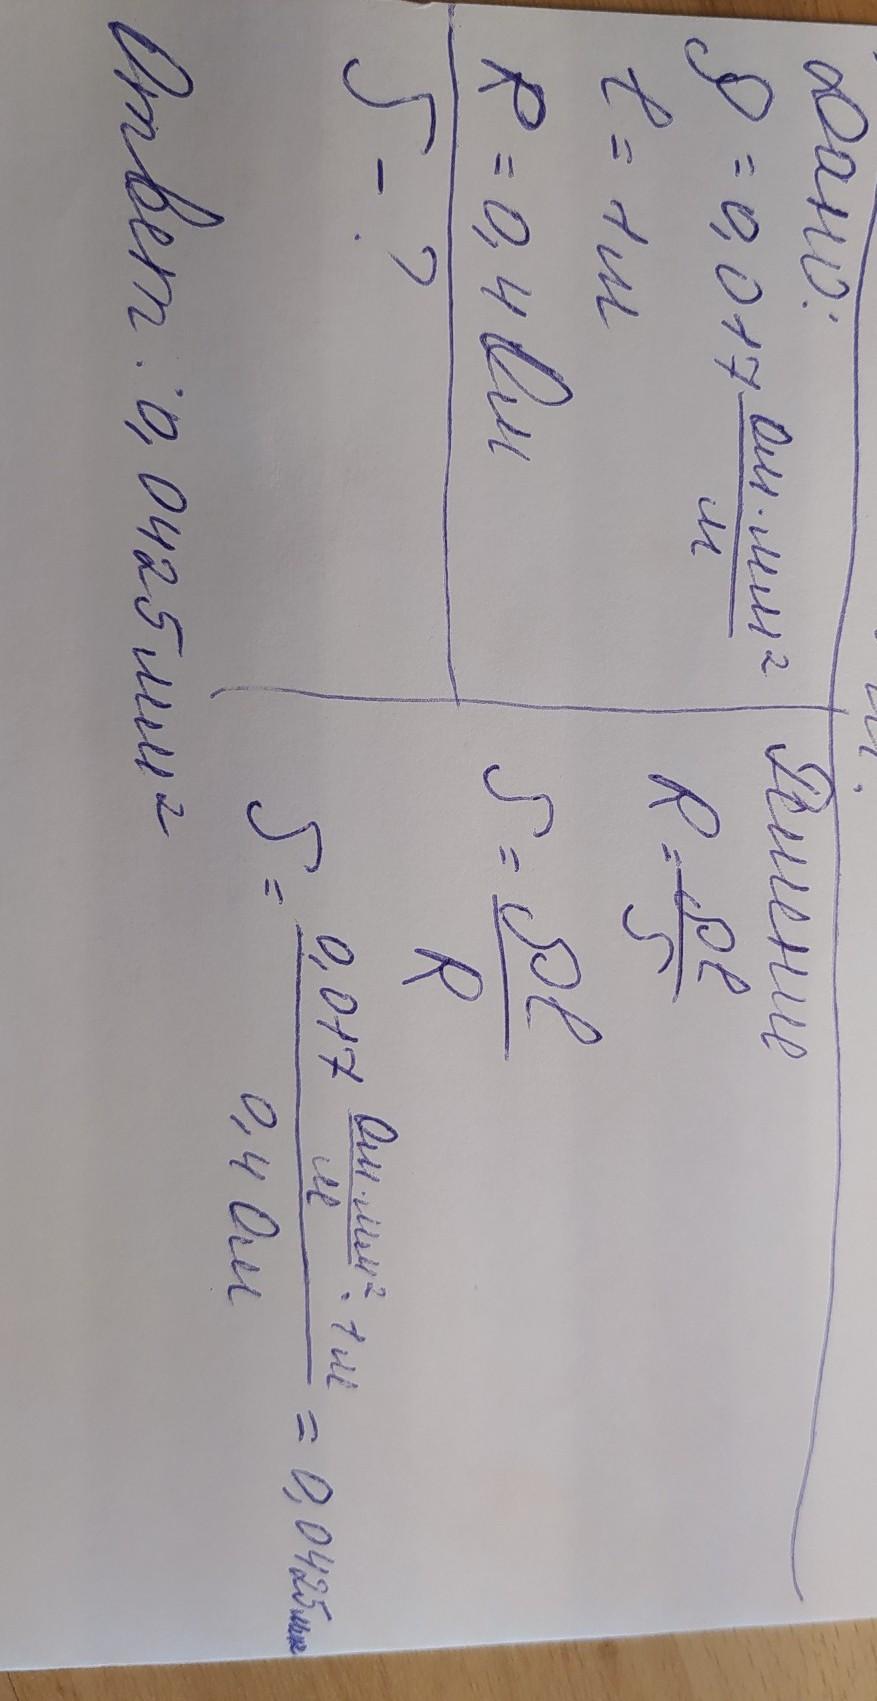 Дано:
ρ = 0,017 Ом·мм²/м
ℓ = 1м
R = 0,4 Ом
S - ?
Решение
R = ρℓ/S
S = ρℓ/R
S = 0,017 Ом·мм²/м · 1м / 0,4 Ом = 0,0425мм²
Ответ: 0,0425мм²